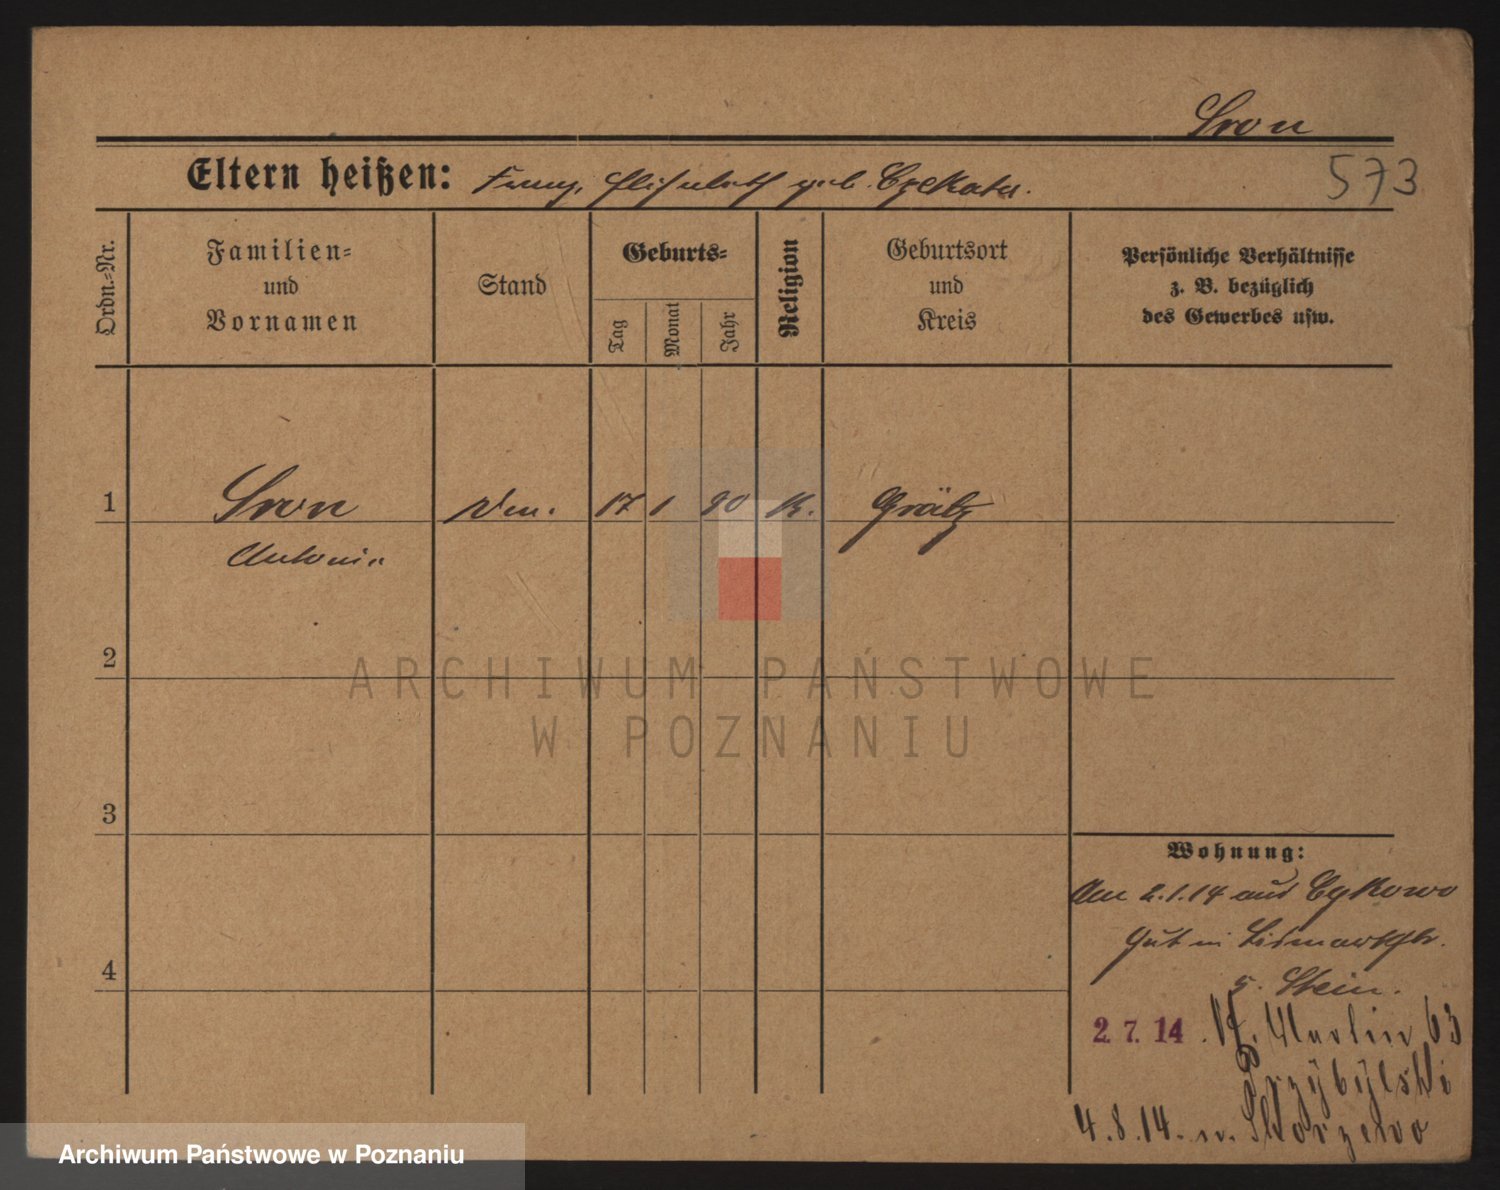 Sron
573
Eltern heißen: Franz, Elisabeth geb. Czekala.
Ordn.-Nr.
Familien-
und
Vornamen
Stand
Geburts-
Tag
Monat
Jahr
Religion
Geburtsort
und
Kreis
Persönliche Verhältnisse
z. B. bezüglich
des Gewerbes usw.
1 Sron 17 1 90 K. Grätz
Antonie
2
3
4
ARCHIWUM PAŃSTWOWE
W POZNANIU
Wohnung:
Am 2.1.14 aus Cykowo
Gut in Bismarckstr.
5. Stein.
2. 7. 14 . St. Martin 63
Przybylski
4.8.14. n. Skorzewo
Archiwum Państwowe w Poznaniu